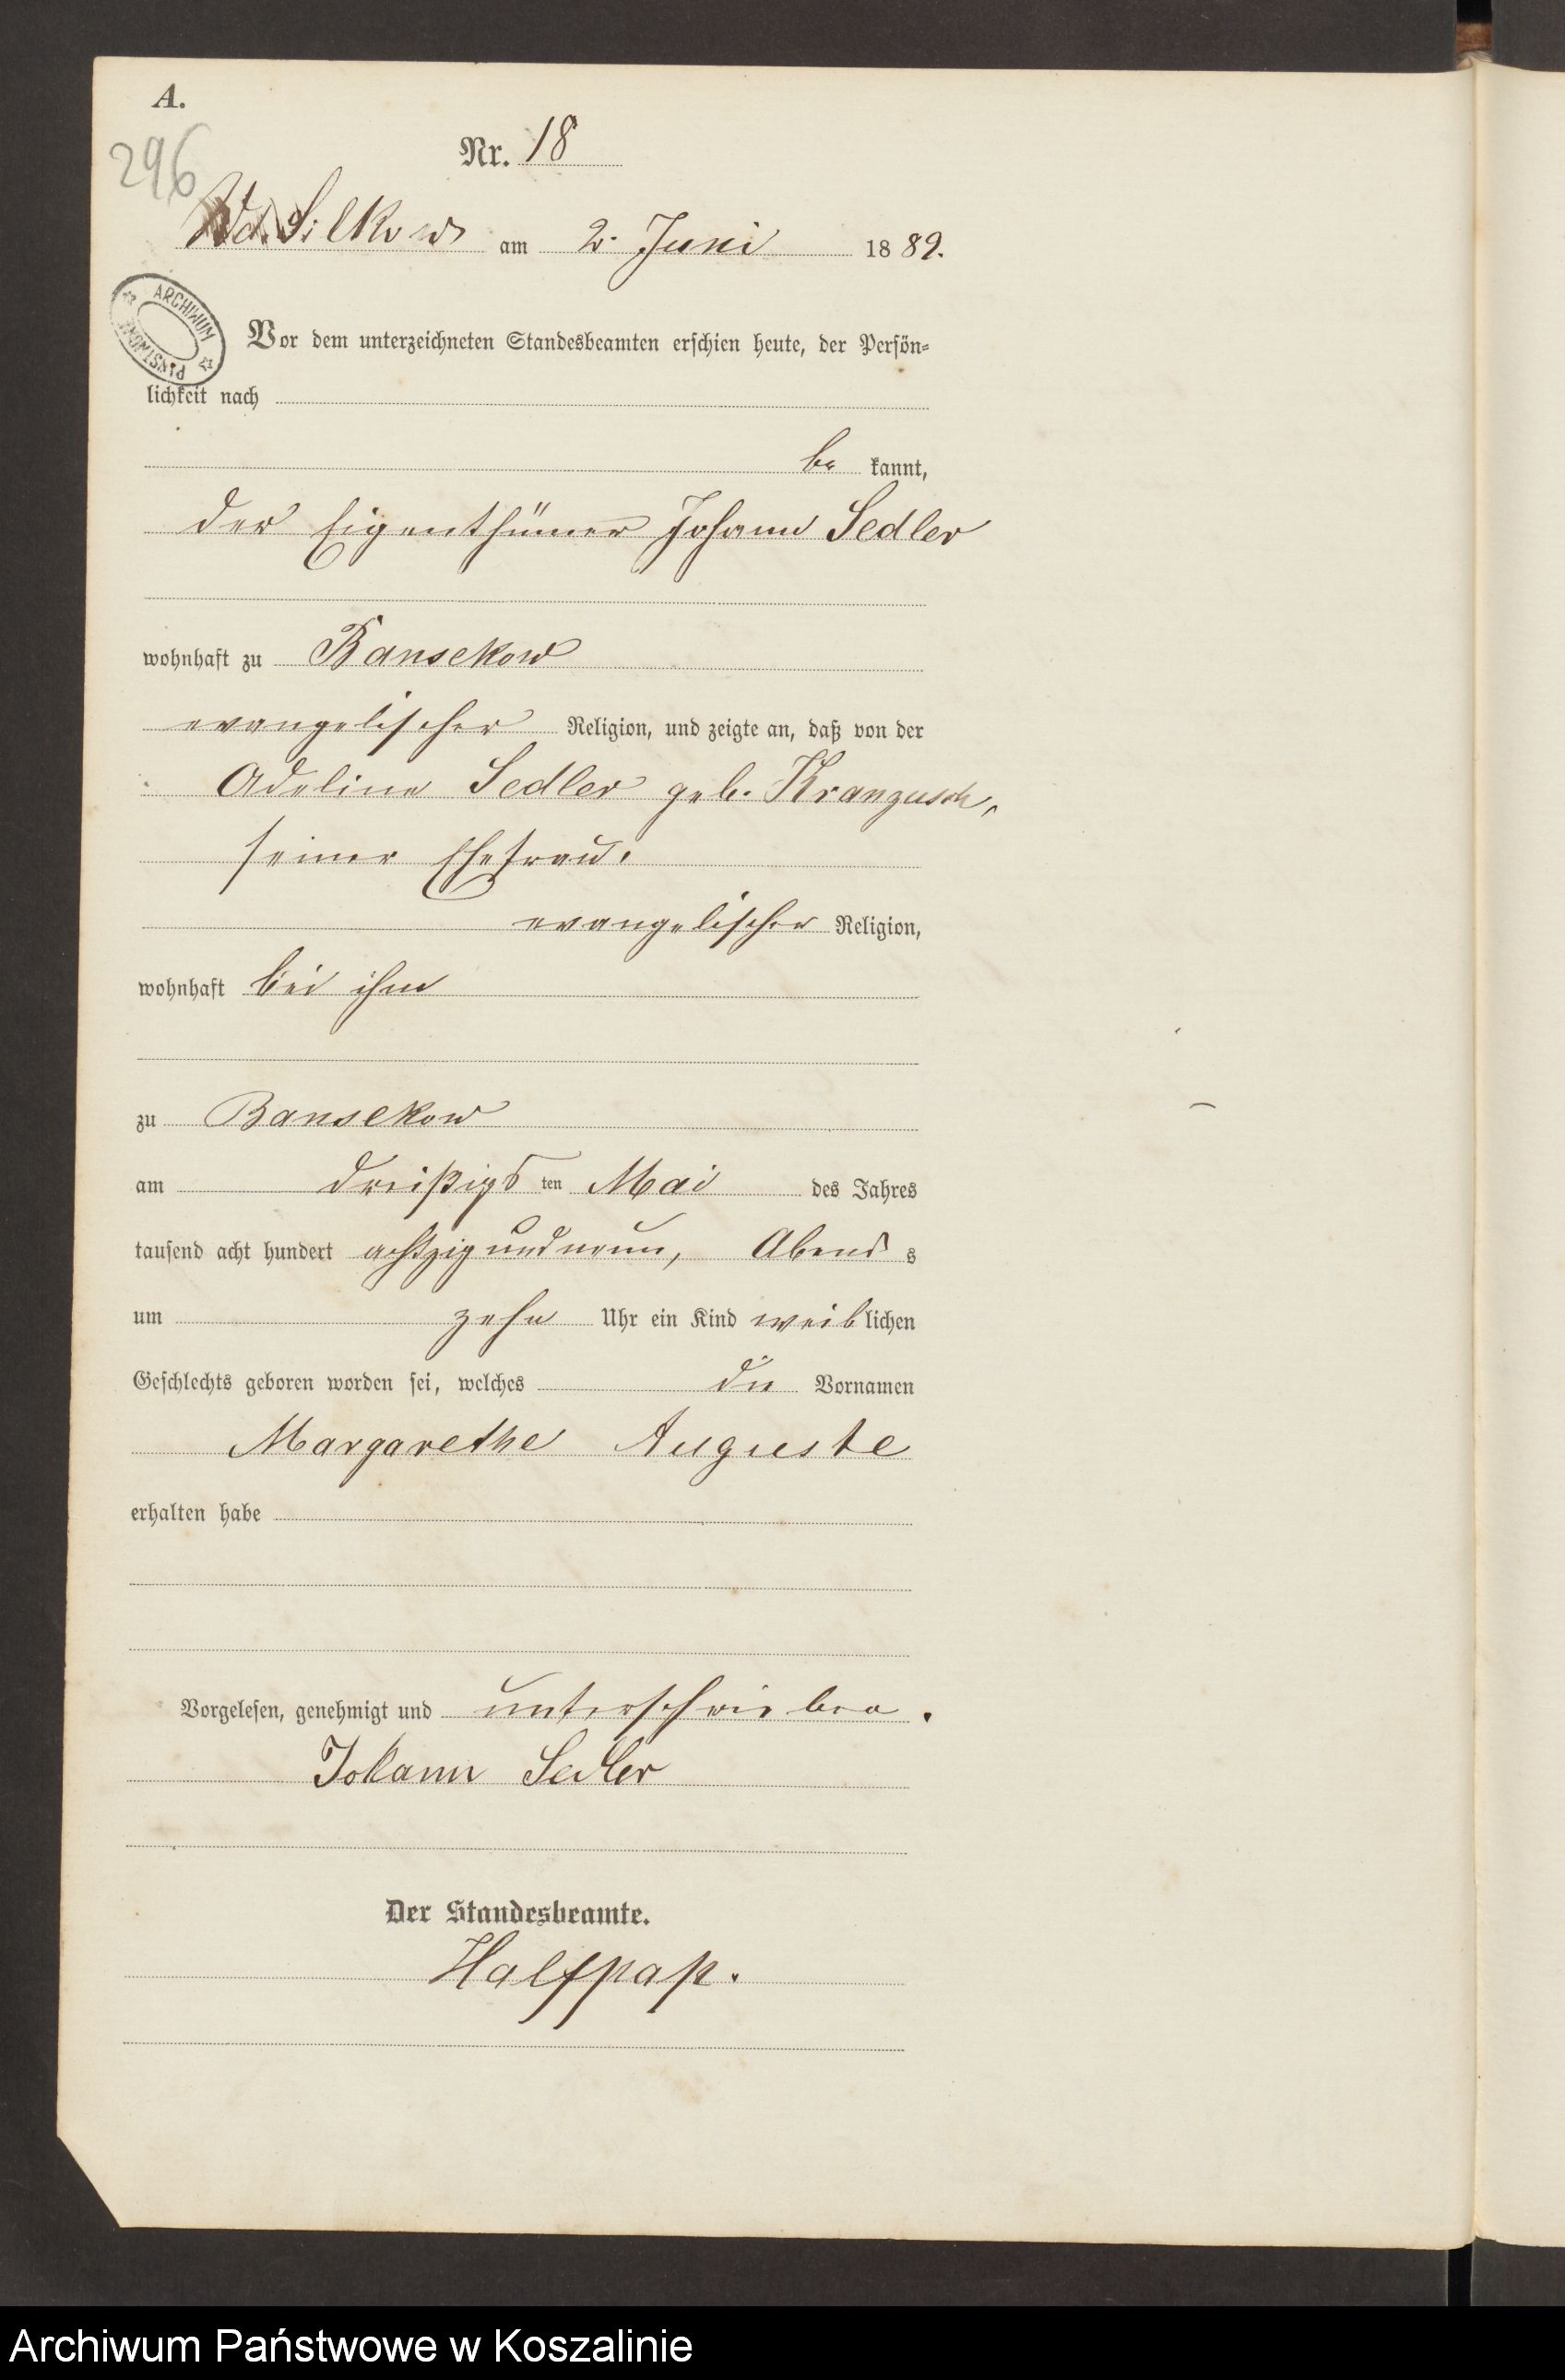 A.
296
Nr. 18
Wd. Silkow am 2. Juni 1889.
ARCHIWUM PAŃSTWOWE
Vor dem unterzeichneten Standesbeamten erschien heute, der Persön-
lichkeit nach
be kannt,
der Eigenthümer Johann Sedler
wohnhaft zu Bansekow
evangelischer Religion, und zeigte an, daß von der
Adeline Sedler geb. Kranzusch,
seiner Ehefrau,
evangelischer Religion,
wohnhaft bei ihm
zu Bansekow
am dreißigs ten Mai des Jahres
tausend acht hundert achtzig und neun, Abend s
um zehn Uhr ein Kind weib lichen
Geschlechts geboren worden sei, welches die Vornamen
Margarethe Auguste
erhalten habe
Vorgelesen, genehmigt und unterschrieben.
Johann Sedler
Der Standesbeamte.
Halfpap.
Archiwum Państwowe w Koszalinie